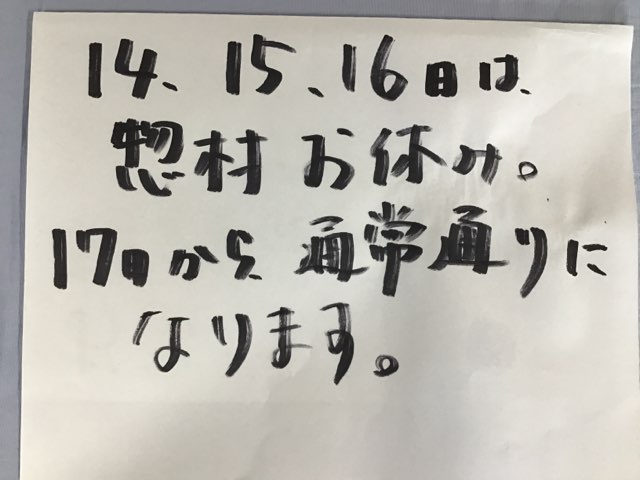 14、15、16日は、
惣材お休み。
17日から、通常通りに
なります。